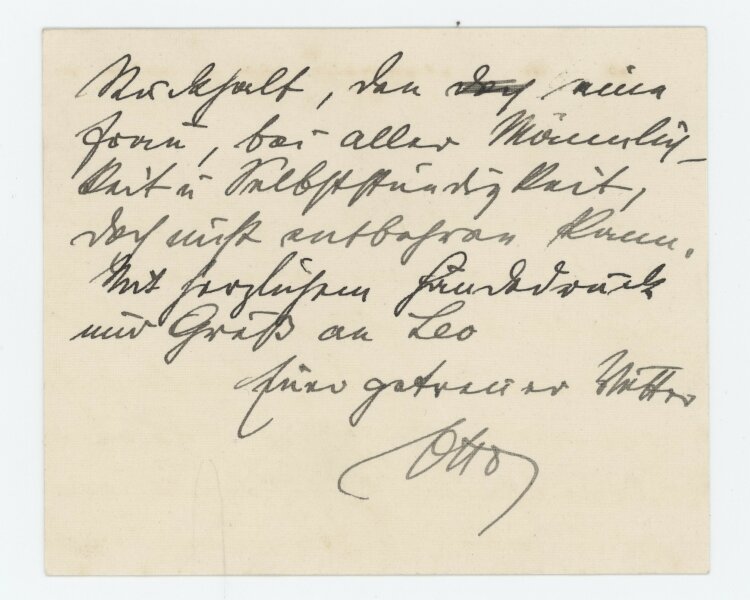 Rückhalt, den doch eine
Frau, bei aller Männlich-
keit u Selbstständigkeit,
doch nicht entbehren kann.
Mit herzlichem Händedruck
und Gruß an Leo
Euer getreuer Vetter
Otto